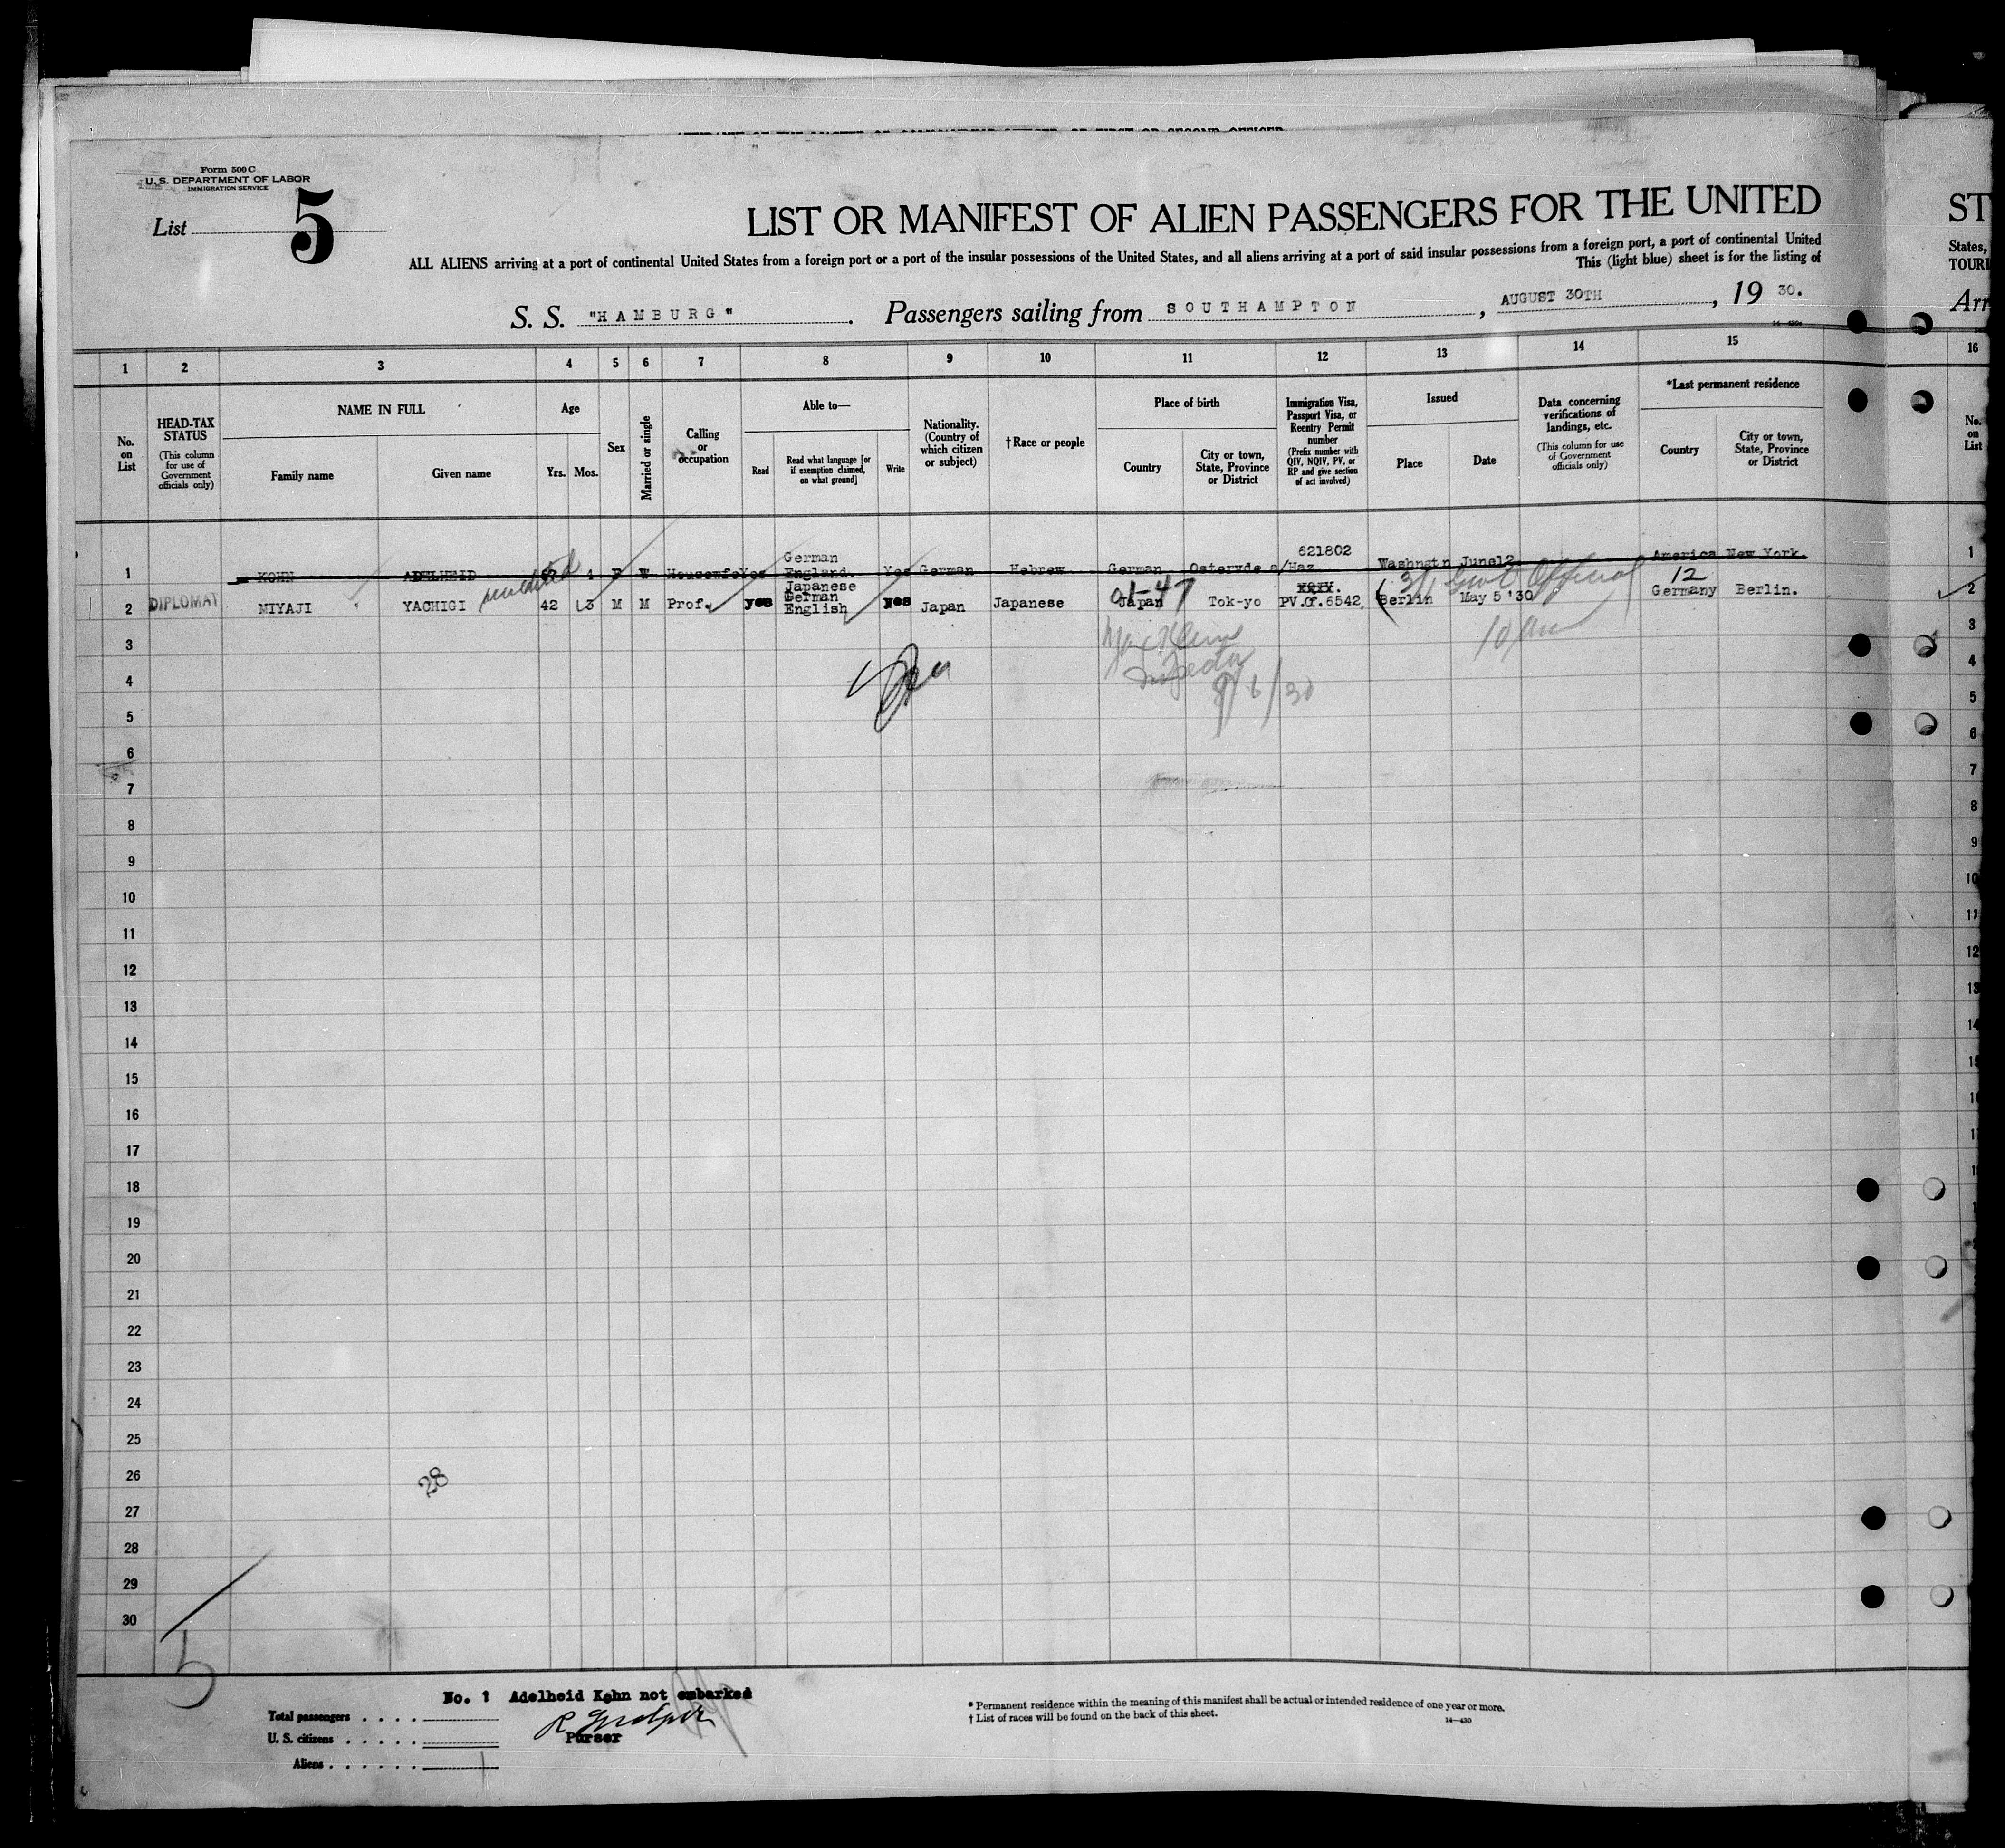 Form 500 C
U. S. DEPARTMENT OF LABOR
IMMIGRATION SERVICE
List 5
LIST OR MANIFEST OF ALIEN PASSENGERS FOR THE UNITED
ST
ALL ALIENS arriving at a port of continental United States from a foreign port or a port of the insular possessions of the United States, and all aliens arriving at a port of said insular possessions from a foreign port, a port of continental United
States,
This (light blue) sheet is for the listing of
TOURI
S. S. "HAMBURG". Passengers sailing from SOUTHAMPTON, AUGUST 30TH, 19 30.
Arr
1 2 3 4 5 6 7 8 9 10 11 12 13 14 15 16
No. on List
HEAD-TAX STATUS
(This column for use of Government officials only)
NAME IN FULL
Family name
Given name
Age
Yrs.
Mos.
Sex
Married or single
Calling or occupation
Able to—
Read
Read what language [or if exemption claimed, on what ground]
Write
Nationality. (Country of which citizen or subject)
†Race or people
Place of birth
Country
City or town, State, Province or District
Immigration Visa, Passport Visa, or Reentry Permit number
(Prefix number with QIV, NQIV, PV, or RP and give section of act involved)
Issued
Place
Date
Data concerning verifications of landings, etc.
(This column for use of Government officials only)
*Last permanent residence
Country
City or town, State, Province or District
No. on List
1 KOHN ADELHEID 1 F W Housewfe Yes German England. Yes German Hebrew German Osterode a/Haz 621802 Washngtn June12. America New York. 1
2 DIPLOMAT MIYAJI YACHIGI 42 3 M M Prof. yes Japanese German English yes Japan Japanese Japan Tok-yo PV.Of.6542 Berlin May 5'30 Germany Berlin. 2
01-47
3(1 Govt Official
12
10
3 3
4 4
Inspector
9/6/30
5 5
6 6
7 7
8 8
9 9
10 10
11 11
12 12
13 13
14 14
15 15
16
17
18
19
20
21
22
23
24
25
26
28
27
28
29
30
5
No. 1 Adelheid Kohn not embarked
Total passengers
U. S. citizens
Purser
Aliens 1
* Permanent residence within the meaning of this manifest shall be actual or intended residence of one year or more.
† List of races will be found on the back of this sheet.
14—430